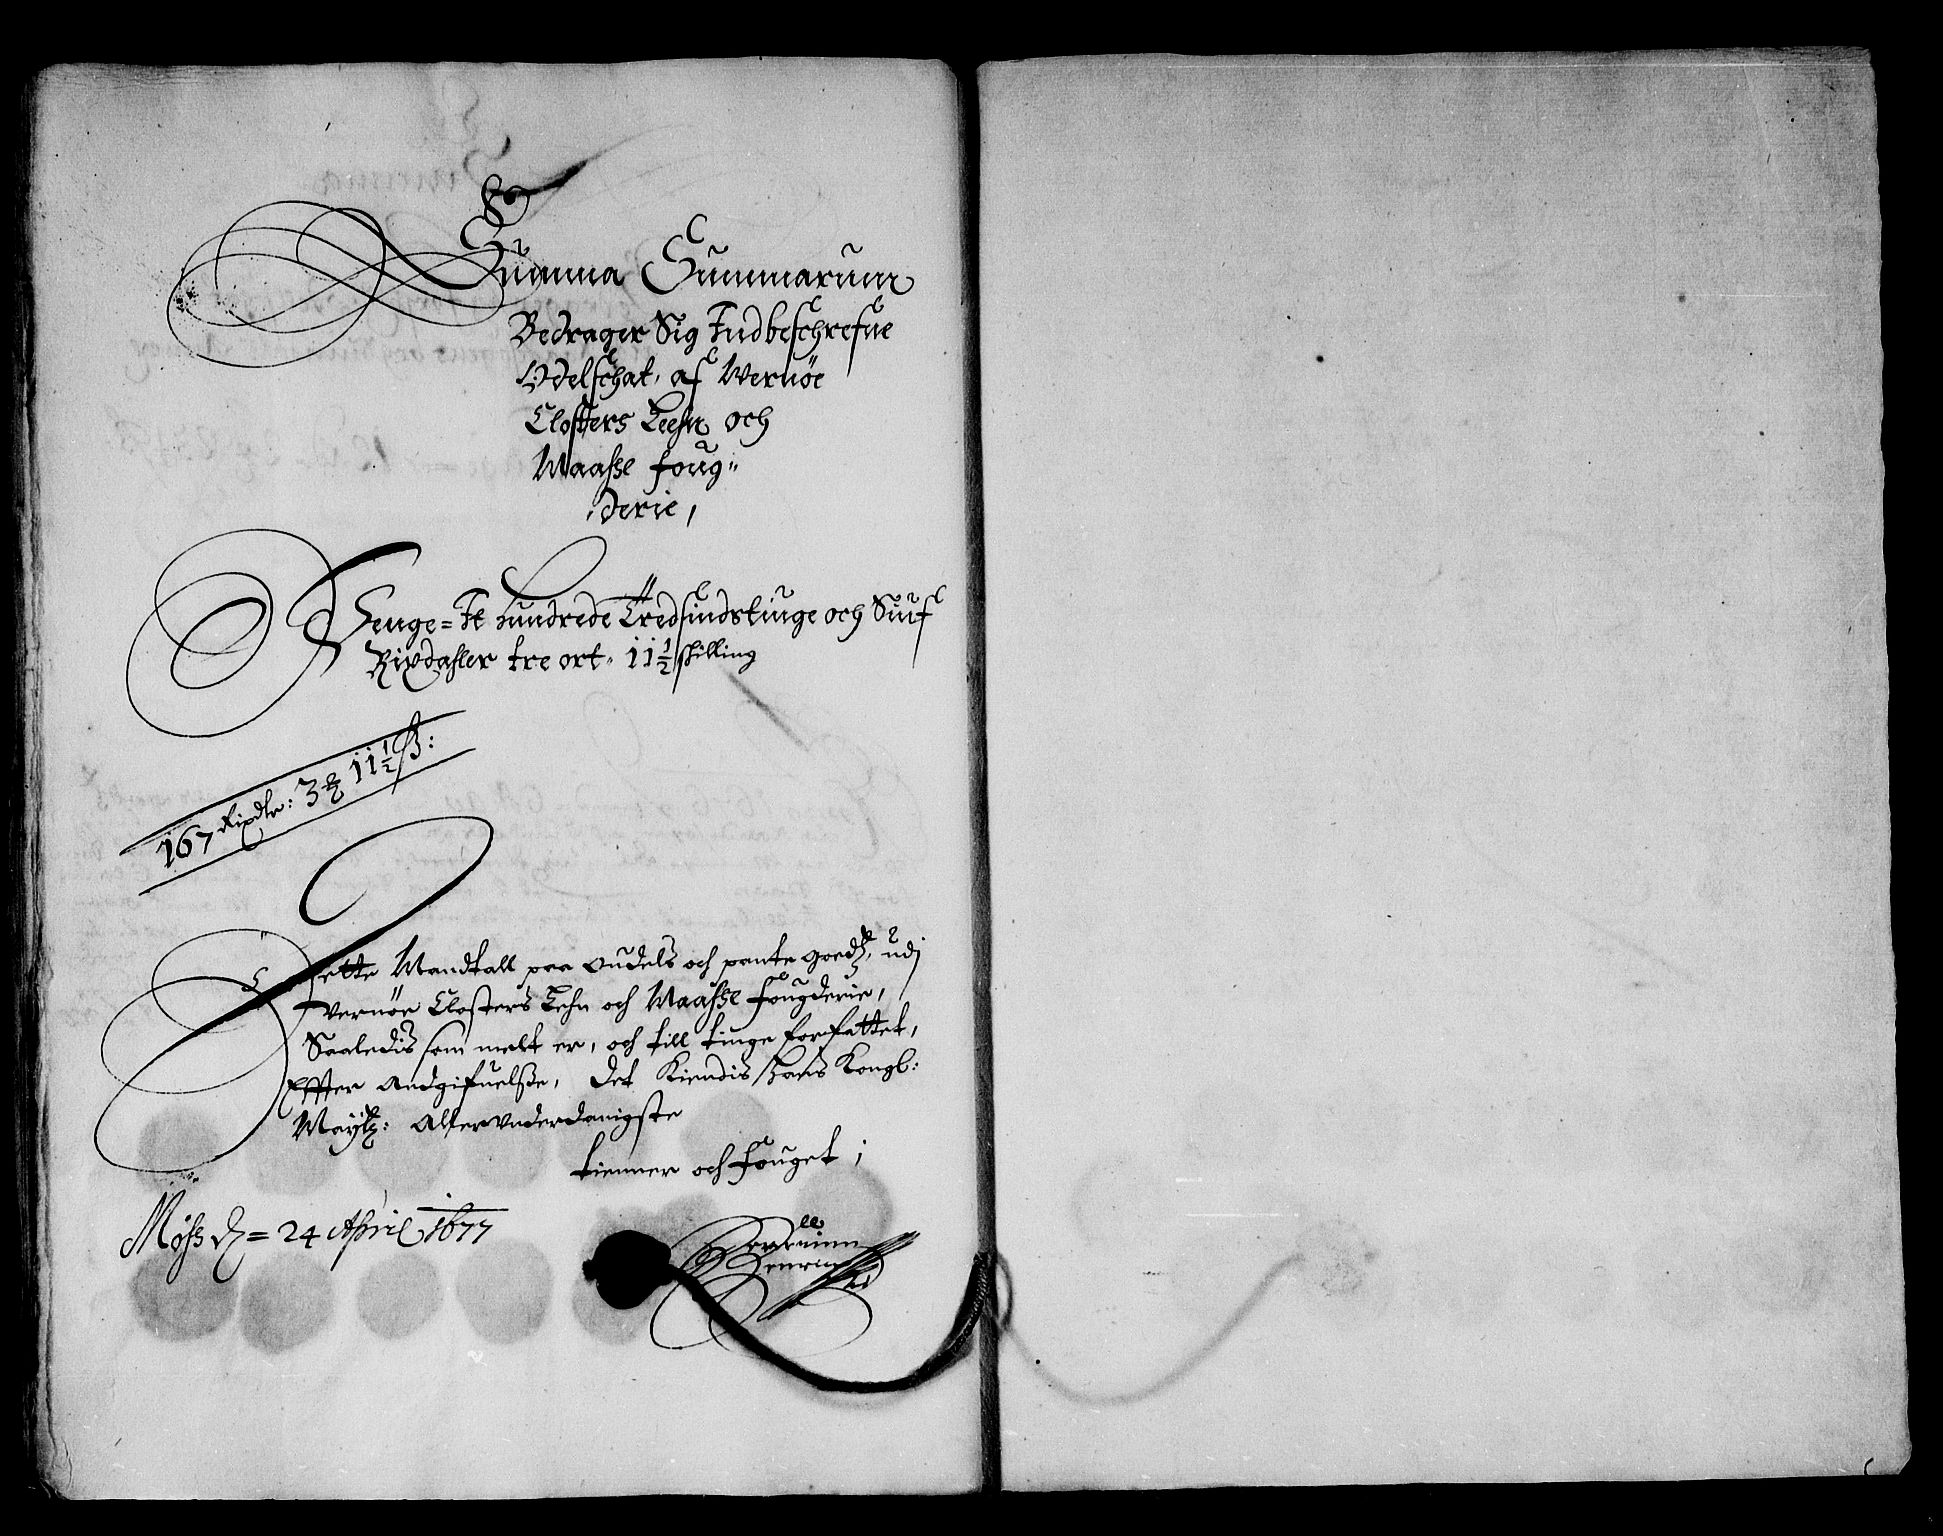 Summa Summarum
Bedrager Sig Indbeschrefne
Odelschat, af Wernöe
Closters Leehn och
Maasse foug„
derie,
Penge = It Hundrede Tredsindstiuge och Siuf
Rixdahler tre ort, 11½ skilling
167 Rixdlr: 3 11½ ß:
Dette Mandtall paa Oudels och pante goedz, udj
Vernöe Closters Lehn och Maasse fougderie,
Saaledis som melt er, och till tinge forfattet,
Effter Andgifuelsse, Det Kiendis Hans Kongl:
Maytz: Allervnderdanigste
tienner och fouget;
Moss d = 24 April 1677